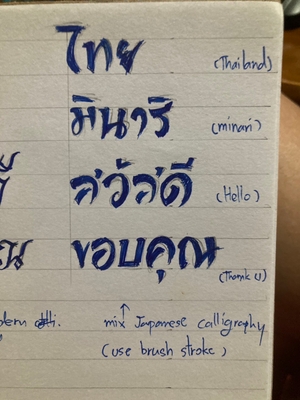 ไทย (Thailand)
มินาริ (minari)
สวัสดี (Hello)
ขอบคุณ (Thank U)
mix Japanese calligraphy
(use brush stroke)